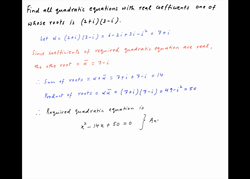 Find all quadratic equations with real coefficients one of
whose roots is (2+i)(3-i).
Let α = (2+i)(3-i) = 6-2i+3i-i² = 7+i
Since coefficients of required quadratic equation are real,
the other root = ᾱ = 7-i
∴ Sum of roots = α+ᾱ = 7+i+7-i = 14
Product of roots = αᾱ = (7+i)(7-i) = 49-i² = 50
∴ Required quadratic equation is
x²-14x+50=0 } An